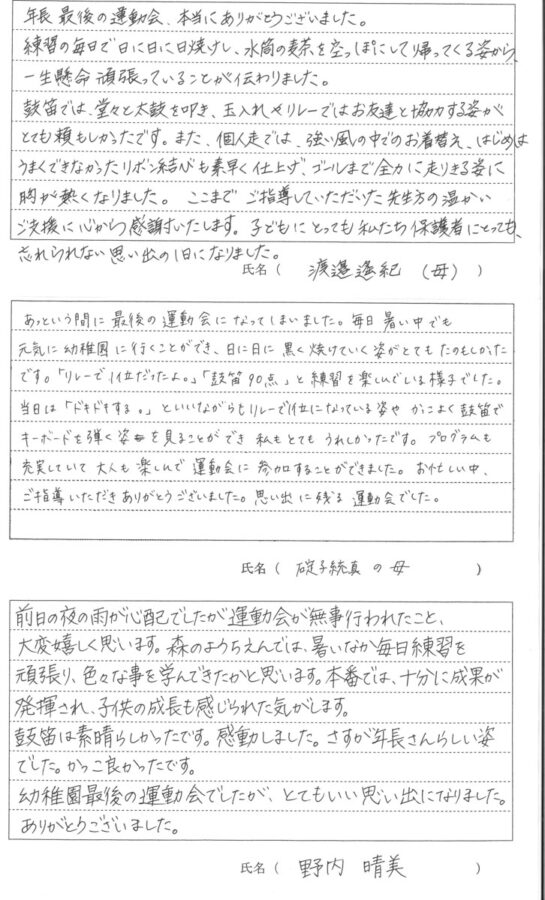 年長最後の運動会、本当にありがとうございました。
練習の毎日で日に日に日焼けし、水筒の麦茶を空っぽにして帰ってくる姿から、
一生懸命頑張っていることが伝わりました。
鼓笛では、堂々と太鼓を叩き、玉入れやリレーではお友達と協力する姿が
とても頼もしかったです。また、個人走では、強い風の中でのお着替え、はじめは
うまくできなかったリボン結びも素早く仕上げ、ゴールまで全力に走りきる姿に
胸が熱くなりました。 ここまでご指導していただいた先生方の温かい
ご支援に心から感謝いたします。子どもにとっても私たち保護者にとっても、
忘れられない思い出の1日になりました。
氏名 ( 渡邉遥紀 (母) )
あっという間に最後の運動会になってしまいました。毎日暑い中でも
元気に幼稚園に行くことができ、日に日に黒く焼けていく姿がとてもたのもしかった
です。「リレーで1位だったよ。」「鼓笛90点」と練習を楽しんでいる様子でした。
当日は「ドキドキする。」といいながらもリレーで1位になっている姿や かっこよく鼓笛で
キーボードを弾く姿を見ることができ 私もとても うれしかったです。プログラムも
充実していて 大人も楽しんで 運動会に参加することができました。お忙しい中、
ご指導いただきありがとうございました。思い出に残る 運動会でした。
氏名 ( 碇子統真 の 母 )
前日の夜の雨が心配でしたが運動会が無事行われたこと、
大変嬉しく思います。森のようちえんでは、暑いなか毎日練習を
頑張り、色々な事を学んできたかと思います。本番では、十分に成果が
発揮され、子供の成長も感じられた気がします。
鼓笛は素晴らしかったです。感動しました。さすが年長さんらしい姿
でした。かっこ良かったです。
幼稚園最後の運動会でしたが、とてもいい思い出になりました。
ありがとうございました。
氏名 ( 野内 晴美 )